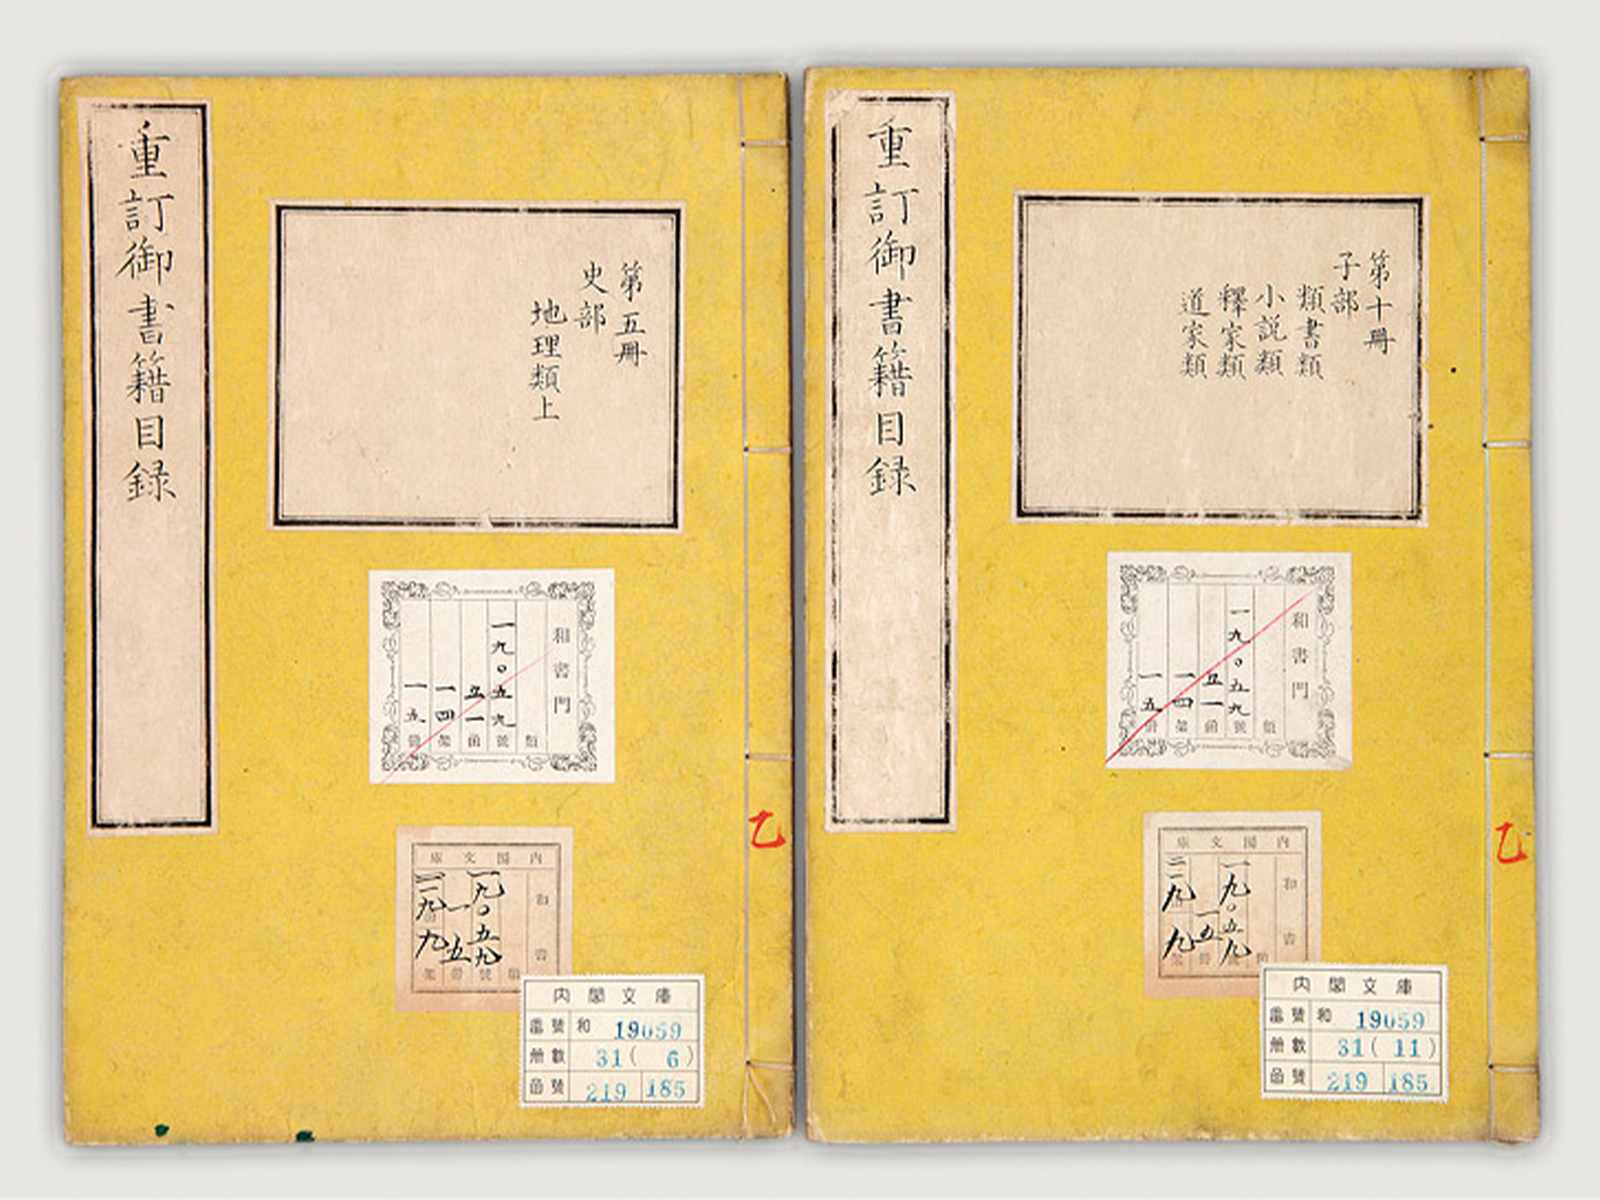 重訂御書籍目録
第五冊
史部
地理類上
和書門
類
一九〇五九號
五一函
一四架
一五冊
内閣文庫
和書
類
一九〇五九號
一五冊
架
内閣文庫
番號 和 19059
冊數 31( 6)
函號 219 185
乙
重訂御書籍目録
第十冊
子部
類書類
小説類
釋家類
道家類
和書門
類
一九〇五九號
五一函
一四架
一五冊
内閣文庫
和書
類
一九〇五九號
一五冊
架
内閣文庫
番號 和 19059
冊數 31( 11)
函號 219 185
乙